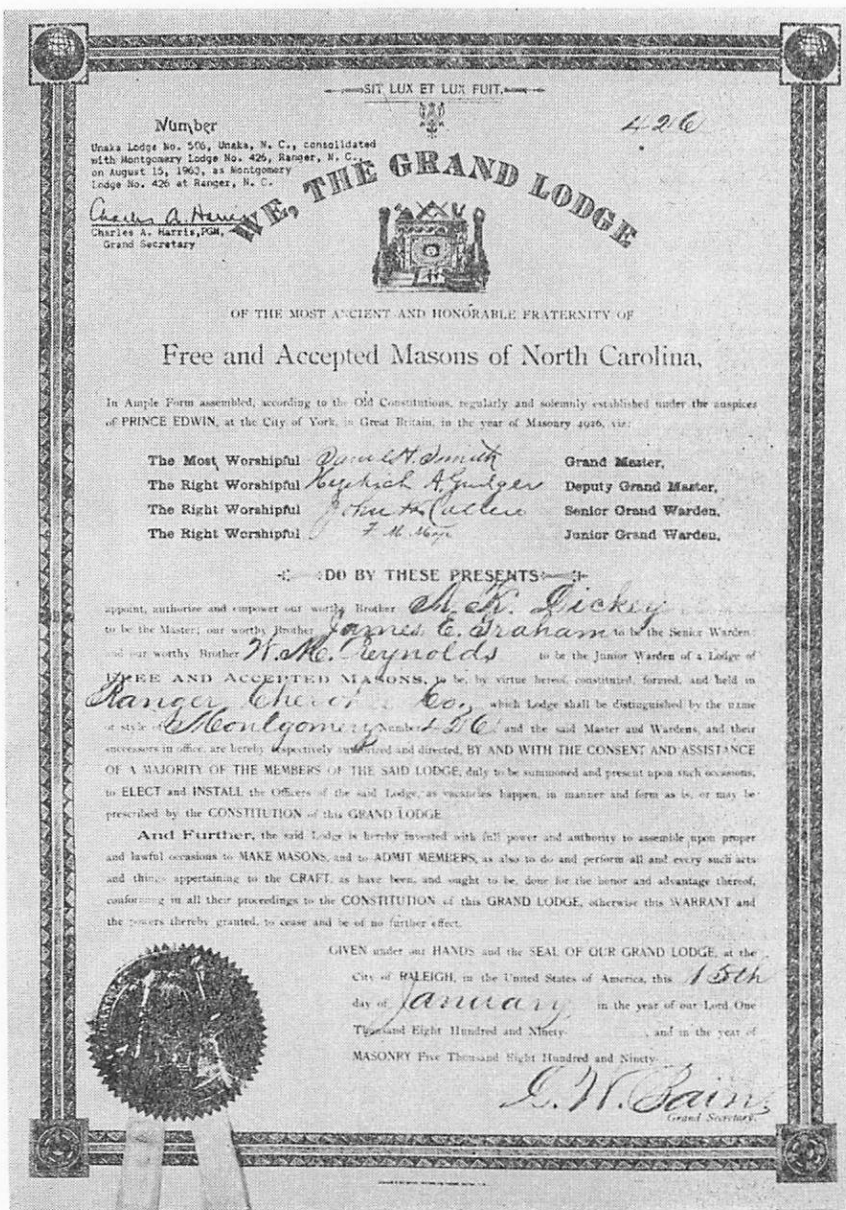 SIT LUX ET LUX FUIT.
Number
426
Unaka Lodge No. 506, Unaka, N. C., consolidated
with Montgomery Lodge No. 426, Ranger, N. C.,
on August 15, 1963, as Montgomery
Lodge No. 426 at Ranger, N. C.
Charles A. Harris
Charles A. Harris, PGM,
Grand Secretary
WE, THE GRAND LODGE
OF THE MOST ANCIENT AND HONORABLE FRATERNITY OF
Free and Accepted Masons of North Carolina,
In Ample Form assembled, according to the Old Constitutions, regularly and solemnly established under the auspices
of PRINCE EDWIN, at the City of York, in Great Britain, in the year of Masonry 4926, viz:
The Most Worshipful Samuel H. Smith Grand Master,
The Right Worshipful Hezekiah A. Gudger Deputy Grand Master,
The Right Worshipful John H. Grand Warden, Senior
The Right Worshipful F. M. Moye Junior Grand Warden,
DO BY THESE PRESENTS
appoint, authorize and empower our worthy Brother A. K. Dickey
to be the Master; our worthy Brother James E. Graham to be the Senior Warden
and our worthy Brother W. M. Reynolds to be the Junior Warden of a Lodge of
FREE AND ACCEPTED MASONS, to be, by virtue hereof, constituted, formed, and held in
Ranger Cherokee Co, which Lodge shall be distinguished by the name
or style of Montgomery Number 426 and the said Master and Wardens, and their
successors in office, are hereby respectively authorized and directed, BY AND WITH THE CONSENT AND ASSISTANCE
OF A MAJORITY OF THE MEMBERS OF THE SAID LODGE, duly to be summoned and present upon such occasions,
to ELECT and INSTALL the Officers of the said Lodge, as vacancies happen, in manner and form as is, or may be
prescribed by the CONSTITUTION of this GRAND LODGE
And Further, the said Lodge is hereby invested with full power and authority to assemble upon proper
and lawful occasions to MAKE MASONS, and to ADMIT MEMBERS, as also to do and perform all and every such acts
and things appertaining to the CRAFT, as have been, and ought to be, done for the honor and advantage thereof,
conforming in all their proceedings to the CONSTITUTION of this GRAND LODGE, otherwise this WARRANT and
the powers thereby granted, to cease and be of no further effect.
GIVEN under our HANDS and the SEAL OF OUR GRAND LODGE, at the
City of RALEIGH, in the United States of America, this 15th
day of January in the year of our Lord One
Thousand Eight Hundred and Ninety- , and in the year of
MASONRY Five Thousand Eight Hundred and Ninety-
D. W. Bain
Grand Secretary.